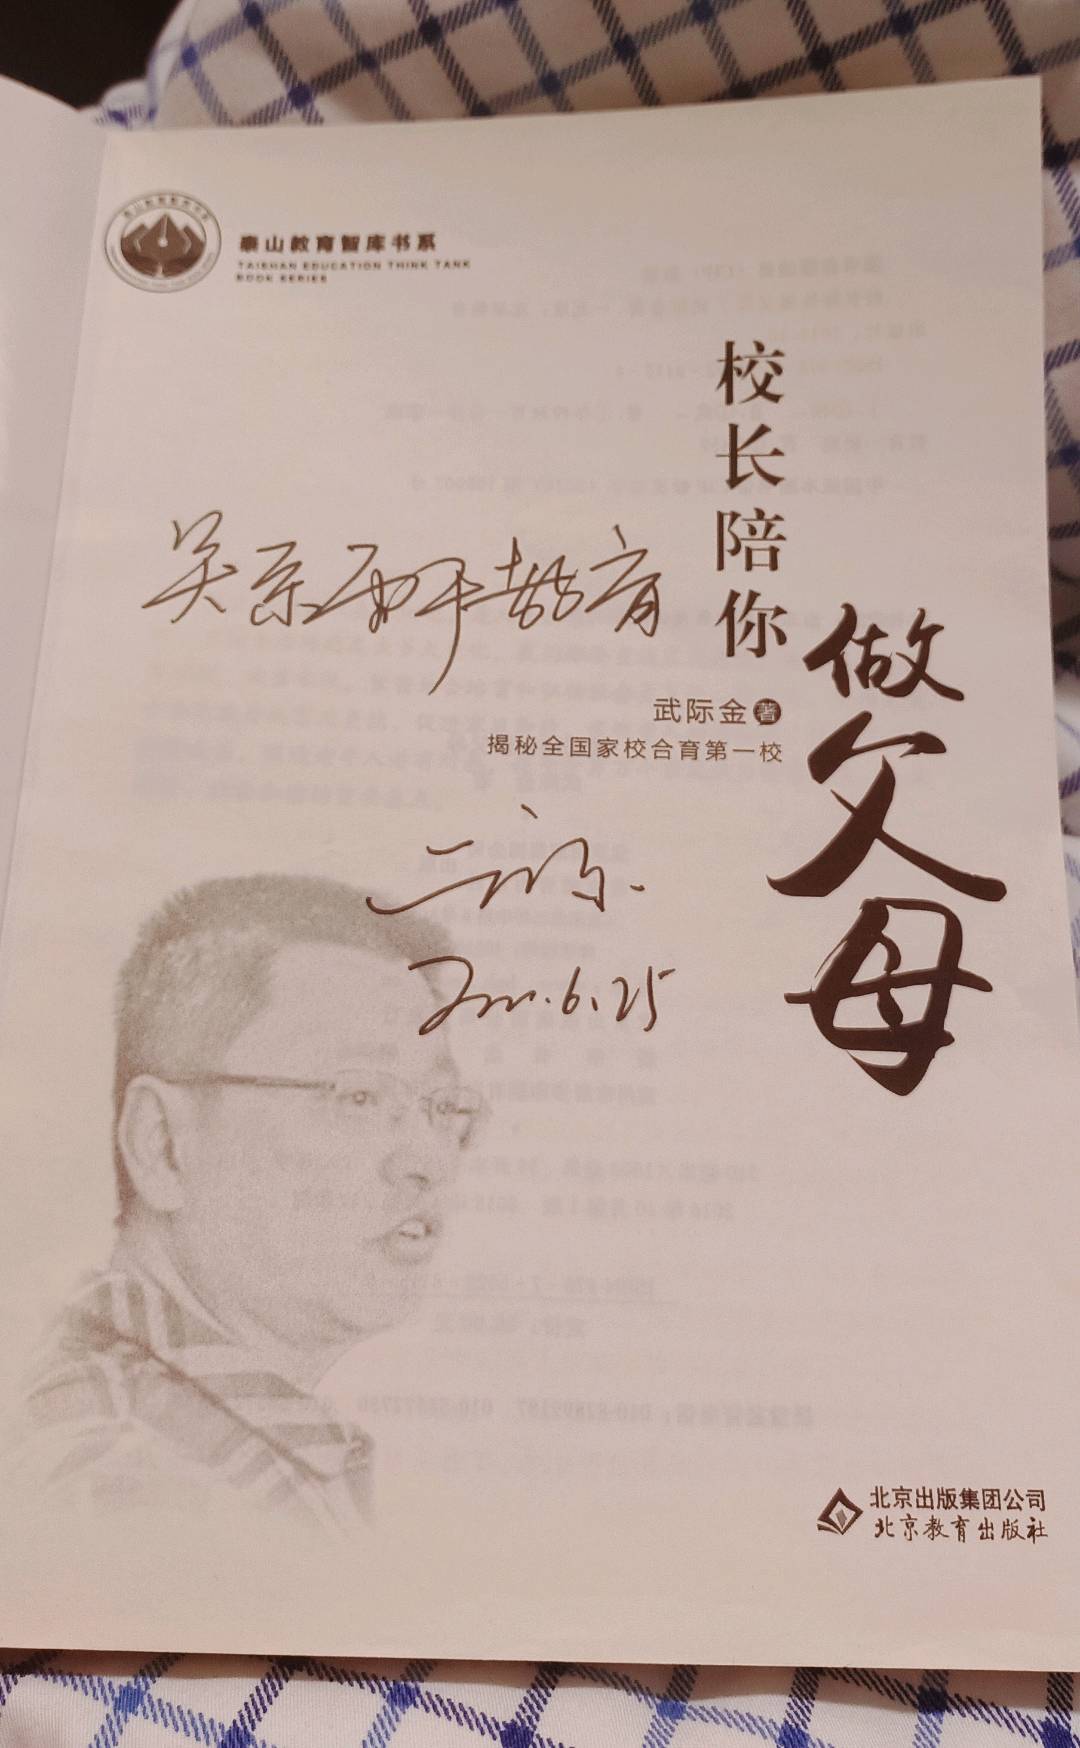 泰山教育智库书系
TAISHAN EDUCATION THINK TANK
BOOK SERIES
校长陪你
做父母
关系重于教育
武际金 著
揭秘全国家校合育第一校
6.25
北京出版集团公司
北京教育出版社